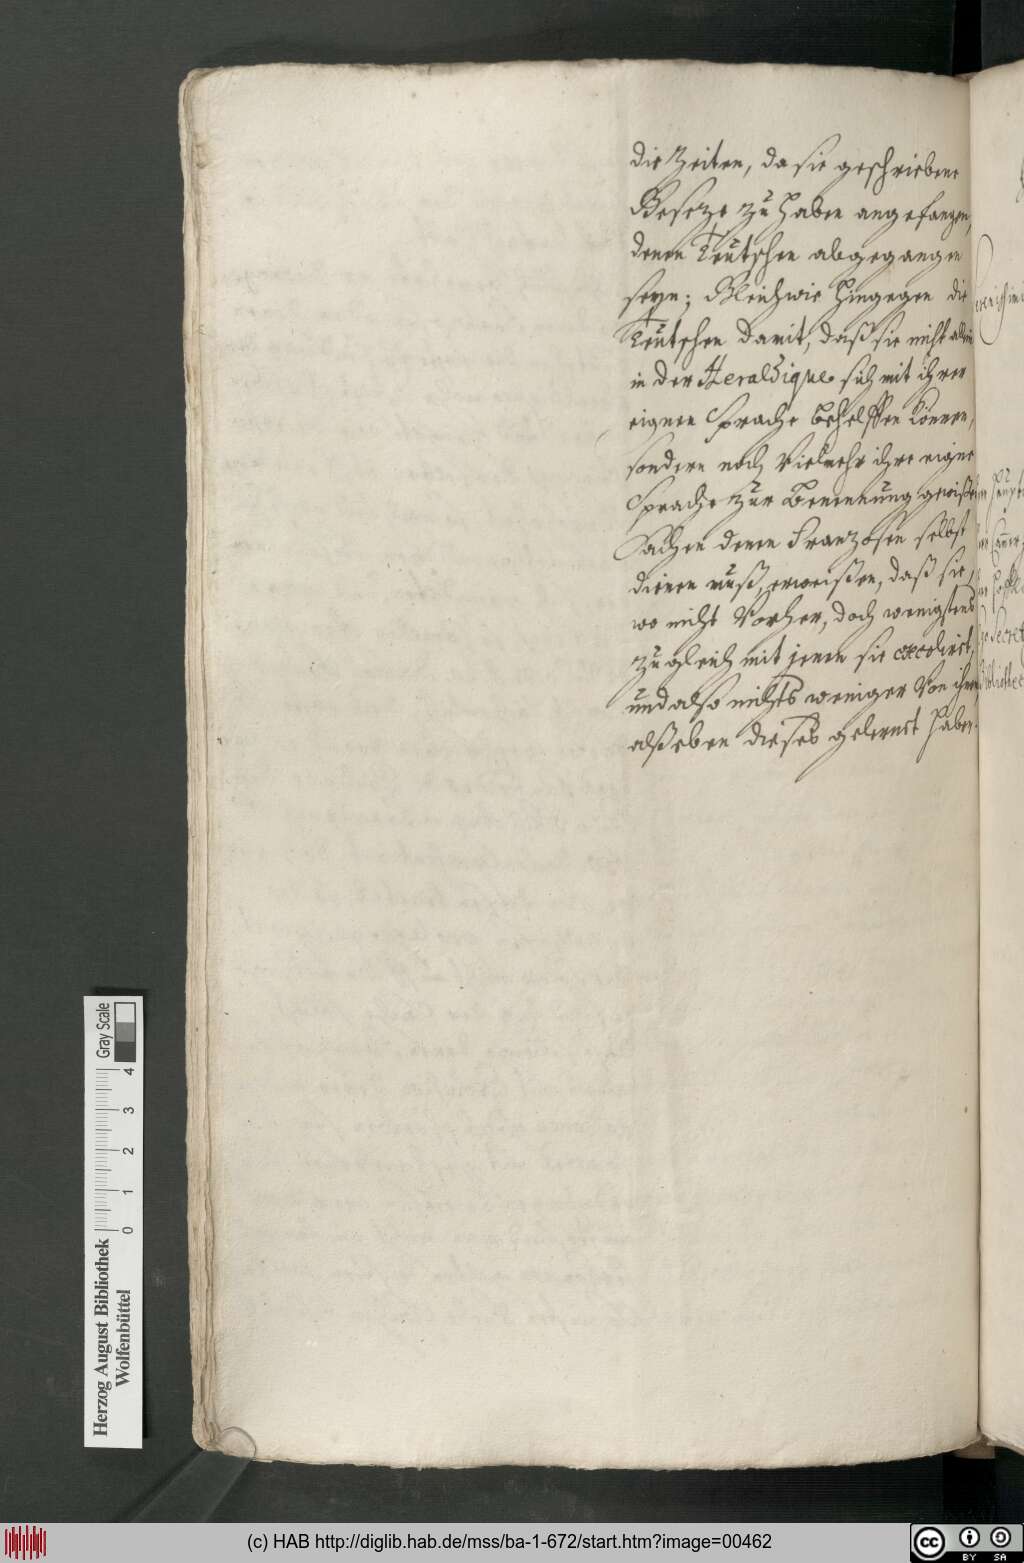 die Zeiten, da sie geschriebene
Geseze zu haben angefangen,
denen Teutschen abgegangen
seyn; Gleichwie hingegen die
Teutschen damit, daß sie nicht allein
in der Heraldique sich mit ihrer
eignen Sprache behelffen können,
sondern noch vielmehr ihre eigne
Sprache zur Benennung gewißer
Sachen denen Franzosen selbst
dienen muß, erweißen, daß sie,
wo nicht vorher, doch wenigstens
zugleich mit jenen sie excolirt,
und also nichts weniger von ihnen
alß eben dieses gelernet haben.
Gray Scale
0 1 2 3 4
Herzog August Bibliothek
Wolfenbüttel
(c) HAB http://diglib.hab.de/mss/ba-1-672/start.htm?image=00462
cc BY SA